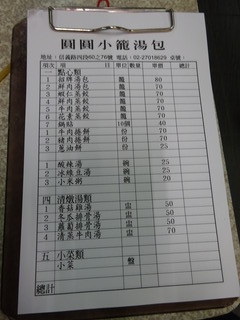 圓圓小籠湯包
地址:信義路四段60之76號 電話:02-27018629
項次 項目 單位 數量 單價 總計
一 點心類
1 招牌湯包 籠 80
2 鮮肉湯包 籠 70
3 蝦仁蒸餃 籠
4 鮮肉蒸餃 籠 70
5 素菜蒸餃 籠 70
6 花素蒸餃 籠 70
7 鍋貼 10個 40
1 牛肉捲餅 份 70
2 豬肉捲餅 份
3 蔥油餅 份 25
1 酸辣湯 碗 25
2 冰綠豆湯 碗
3 小米粥 碗 20
四 清燉湯類
1 香菇雞湯 盅 50
2 冬瓜排骨湯 盅 50
3 蘿蔔排骨湯 盅 50
4 清蒸牛肉湯 盅 70
五 小菜類
小菜 盤
總計